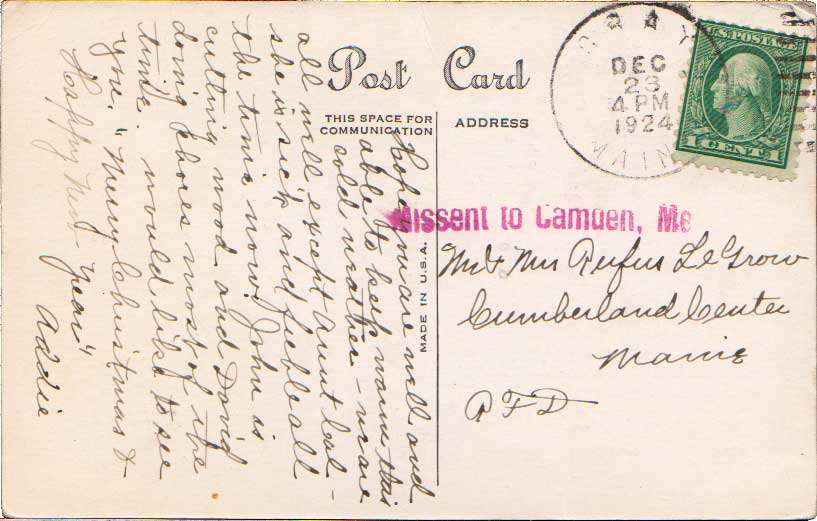 Post Card
THIS SPACE FOR
COMMUNICATION
ADDRESS
MADE IN U.S.A.
GRAY
DEC
23
4 PM
1924
MAINE
U.S. POSTAGE
1 CENT 1
Missent to Camden, Me
Mr & Mrs Rufus LeGrow
Cumberland Center
Maine
RFD
Hope you are well and
able to keep warm this
cold weather - we are
all well except Aunt
she is sick and feeble all
the time now. John is
cutting wood and David
doing chores most of the
time. would like to see
you. "Merry Christmas &
Happy New Year"
Addie